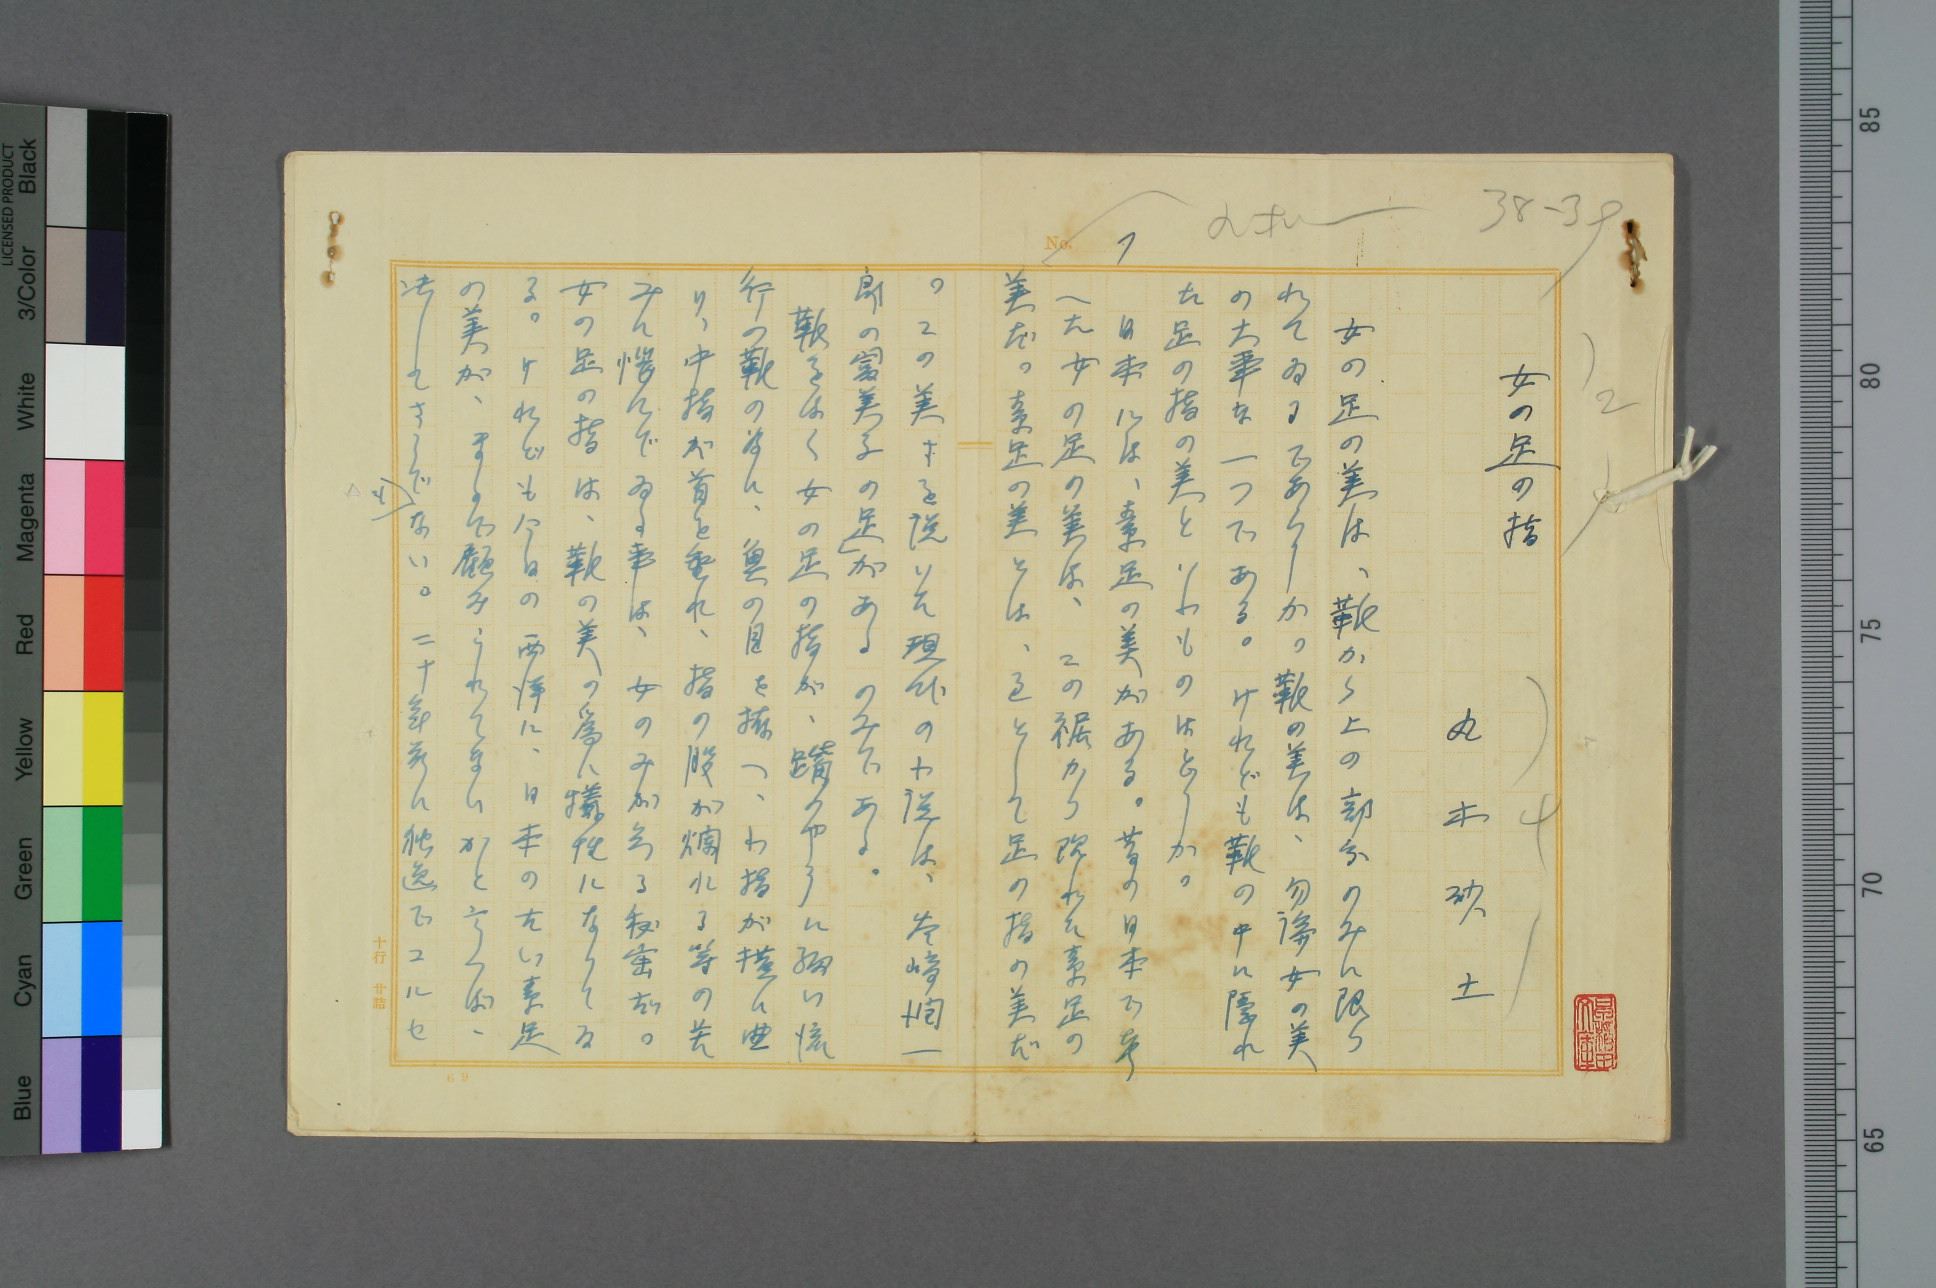 38-39
No. 1
女の足の指
丸木砂土
女の足の美は、靴から上の部分のみに限ら
れてゐるであらうか。靴の美は、勿論女の美
の大事な一つである。けれども靴の中に隠れ
た足の指の美といふものはどうか。
日本には、素足の美がある。昔の日本で考
へた女の足の美は、この裾から現れた素足の
美だ。素足の美とは、主として足の指の美だ
。この美すを説いた現代の小説は、谷崎潤一
郎の富美子の足があるのみである。
靴をはく女の足の指が、踏のやうに細い流
行の靴の為に、魚の目を拵へ、小指が横に曲
り、中指が首を垂れ、指の股が爛れる等の苦
みに悩んでゐる事は、女のみが知る秘密だ。
女の足の指は、靴の美の為に犠牲になつてゐ
る。けれども今日の西洋に、日本の古い素足
の美が、まるで顧みられてないかと言へば、
決してさうでない。二十年前に独逸でコルセ
十行 廿詰
69
Black
3/Color
White
Magenta
Red
Yellow
Green
Cyan
Blue
LICENSED PRODUCT
85
80
75
70
65